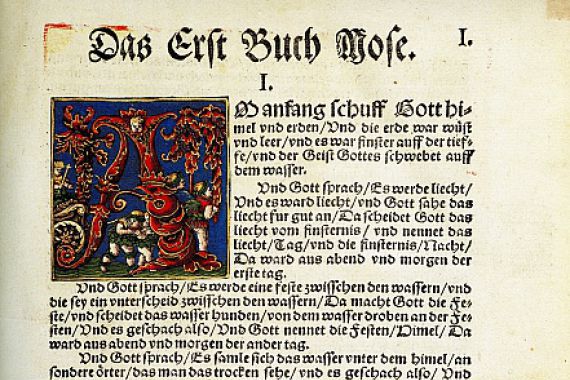 Das Erst Buch Mose. I.
I.
M anfang schuff Gott hi⸗
mel vnd erden/Vnd die erde war wüst
vnd leer/vnd es war finster auff der tief⸗
fe/vnd der Geist Gottes schwebet auff
dem wasser.
Vnd Gott sprach/Es werde liecht/
Vnd es ward liecht/vnd Gott sahe das
liecht fur gut an/Da scheidet Gott das
liecht vom finsternis/vnd nennet das
liecht/Tag/vnd die finsternis/Nacht/
Da ward aus abend vnd morgen der
erste tag.
Vnd Gott sprach/Es werde eine feste zwisschen den wassern/vnd
die sey ein vnterscheid zwisschen den wassern/Da macht Gott die Fe⸗
ste/vnd scheidet das wasser hunden/von dem wasser droben an der Fe⸗
sten/Vnd es geschach also/Vnd Gott nennet die Festen/Himel/Da
ward aus abend vnd morgen der ander tag.
Vnd Gott sprach/Es samle sich das wasser vnter dem himel/an
sondere örter/das man das trocken sehe/vnd es geschach also/Vnd